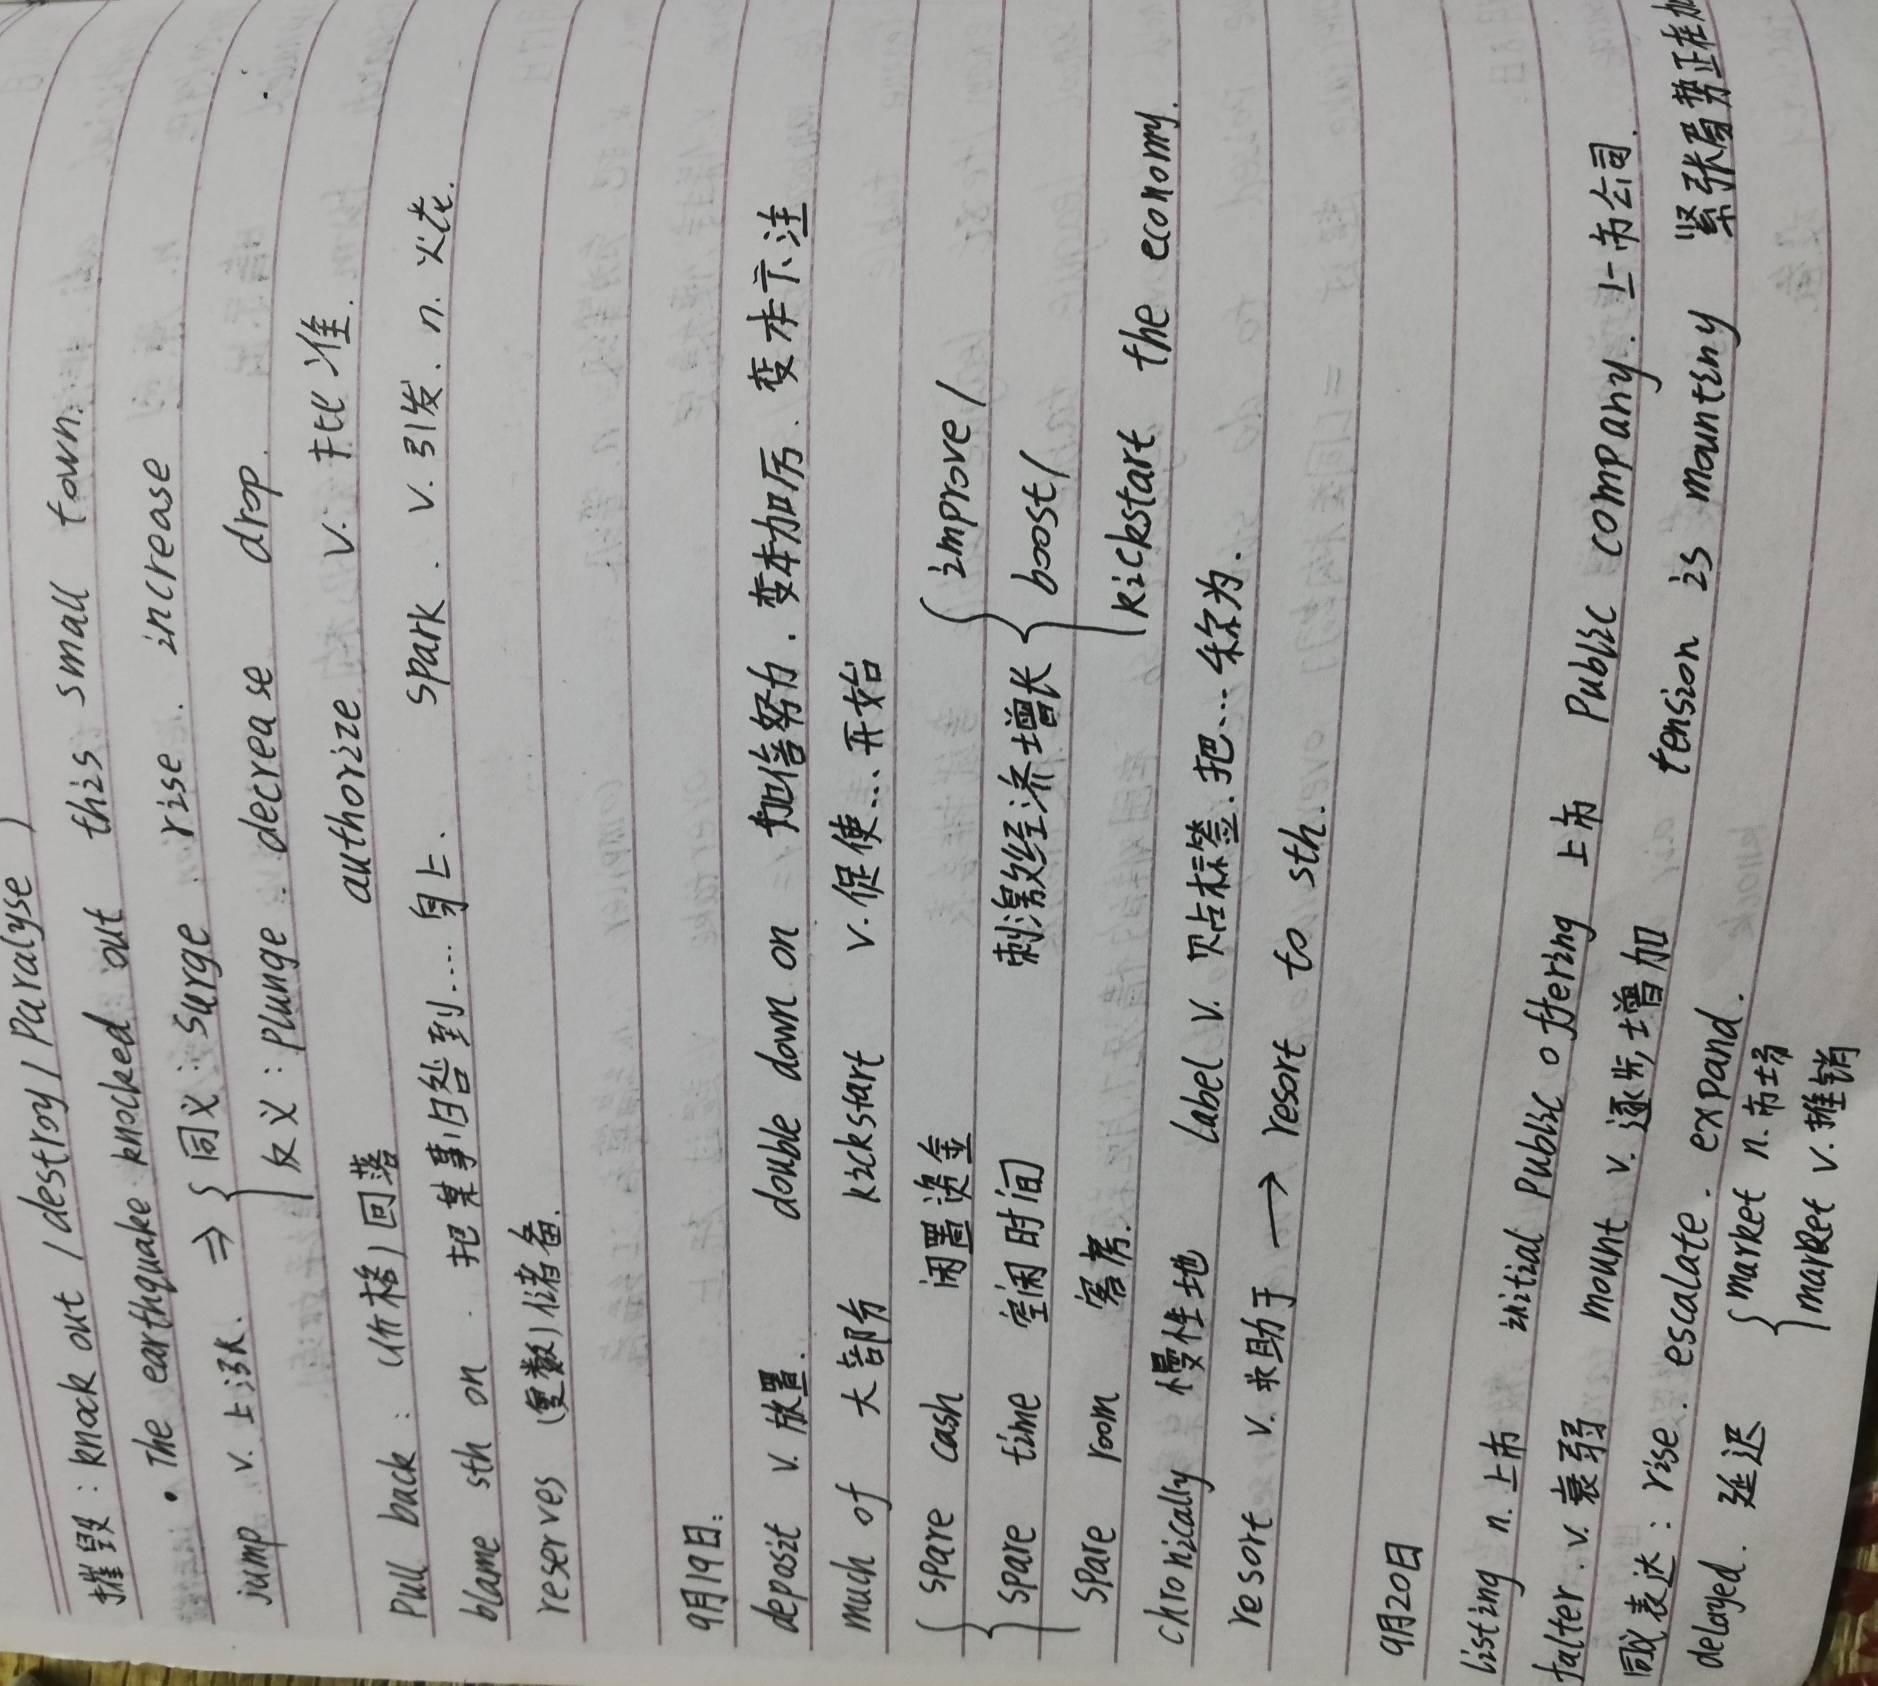 摧毁：knock out / destroy / Paralyse )
· The earthquake knocked out this small town.
jump v. 上涨. ⇒ { 同义：surge. rise. increase
反义：Plunge. decrease drop.
authorize v. 批准.
Pull back：(价格)回落
blame sth on. 把某事归咎到.... 身上. spark. v. 引发. n. 火花.
reserves (复数)储备.
9月19日：
deposit v. 放置. double down on 加倍努力. 变本加厉. 变本下注
much of 大部分 kickstart v. 促使... 开始
{ spare cash 闲置资金 { improve /
spare time 空闲时间 刺激经济增长 boost /
spare room 客房. kickstart the economy.
chronically 慢性地 Label v. 贴标签. 把... 称为.
resort v. 求助于 → resort to sth.
9月20日
listing n. 上市 initial Public offering 上市 Public company. 上市公司.
falter. v. 衰弱 mount v. 逐步增加 tension is mounting 紧张局势正在加
同义表达：rise. escalate. expand.
delayed. 延迟 { market n. 市场
market v. 推销